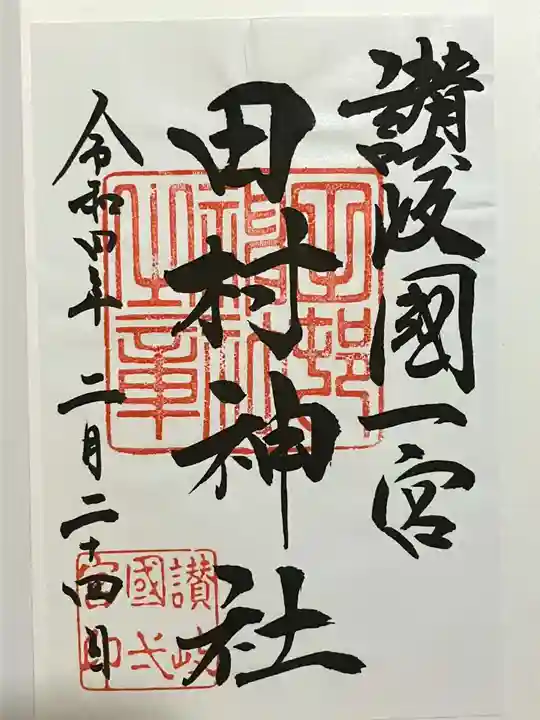 讃岐國一宮
田村神社
令和四年 二月二十四日
讃岐
國弌
宮印